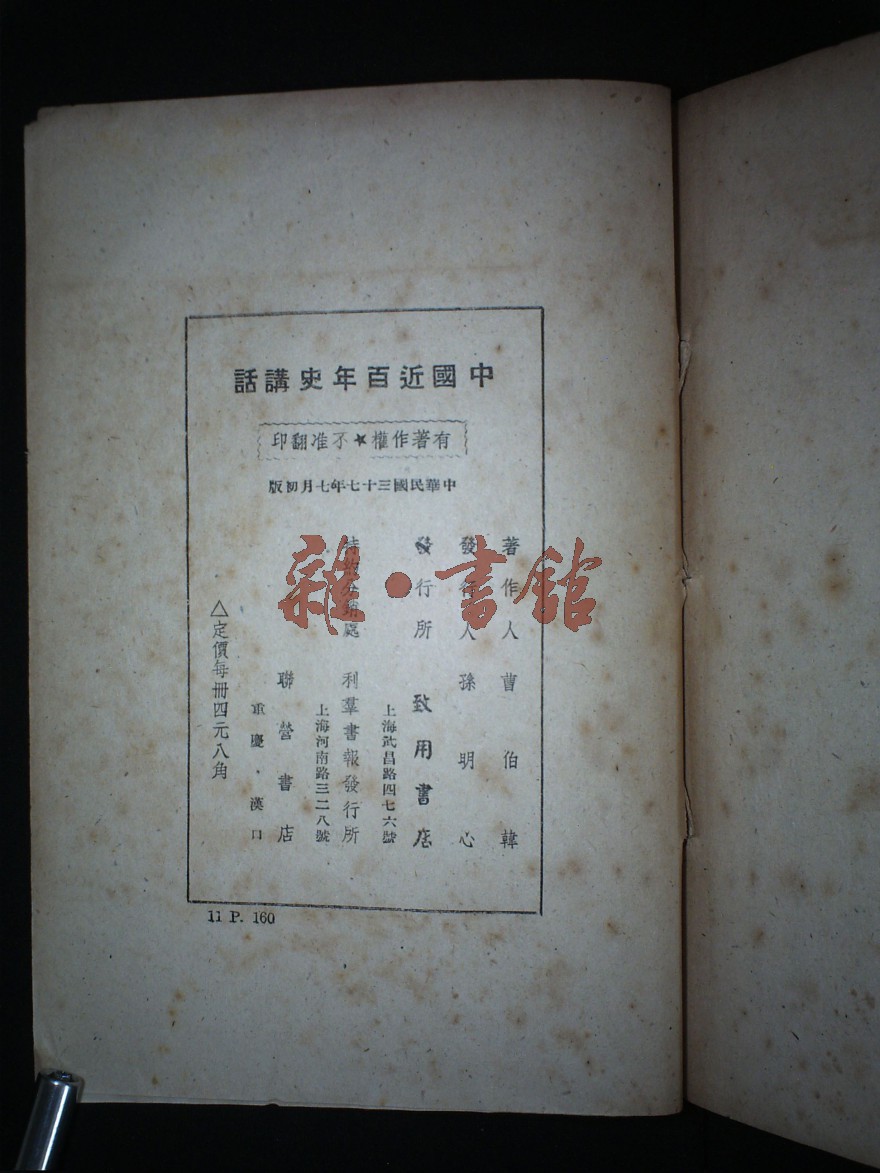 中國近百年史講話
有著作權★不准翻印
中華民國三十七年七月初版
著作人 曹伯韓
發行人 孫明心
發行所 致用書店
上海武昌路四七六號
特約分銷處 利羣書報發行所
上海河南路三二八號
聯營書店
重慶·漢口
△定價每冊四元八角
11 P. 160
雜·書館